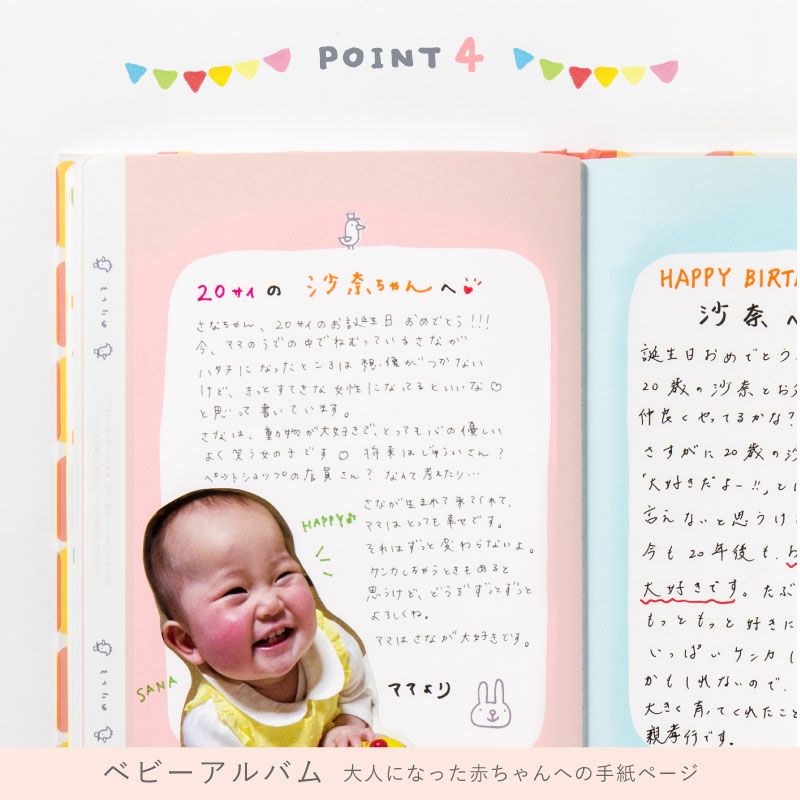 POINT 4
20サイの 沙奈ちゃんへ
さなちゃん、20サイのお誕生日 おめでとう!!!
今、ママのうでの中でねむっているさなが
ハタチになったところは想像がつかない
けど、きっとすてきな女性になってるといいな♡
と思って書いています。
さなは、動物が大好きで、とっても心の優しい
よく笑う女の子です♡ 将来はじゅういさん?
ペットショップの店員さん? なんて考えたり…
さなが生まれて来てくれて、
ママはとっても幸せです。
それはずっと変わらないよ。
ケンカしちゃうときもあると
思うけど、どうぞずっとずっと
よろしくね。
ママはさなが大好きです。
HAPPY♪
SANA
ママより
HAPPY BIRTH
沙奈へ
誕生日おめでとう
20歳の沙奈とお父
仲良くやってるかな?
さすがに20歳の沙
「大好きだよー!!」とは
言えないと思うけ
今も20年後も、
大好きです。たぶ
もっともっと好きに
いっぱいケンカし
かもしれないので、
大きく育ってくれたこと
親孝行です。
ベビーアルバム 大人になった赤ちゃんへの手紙ページ